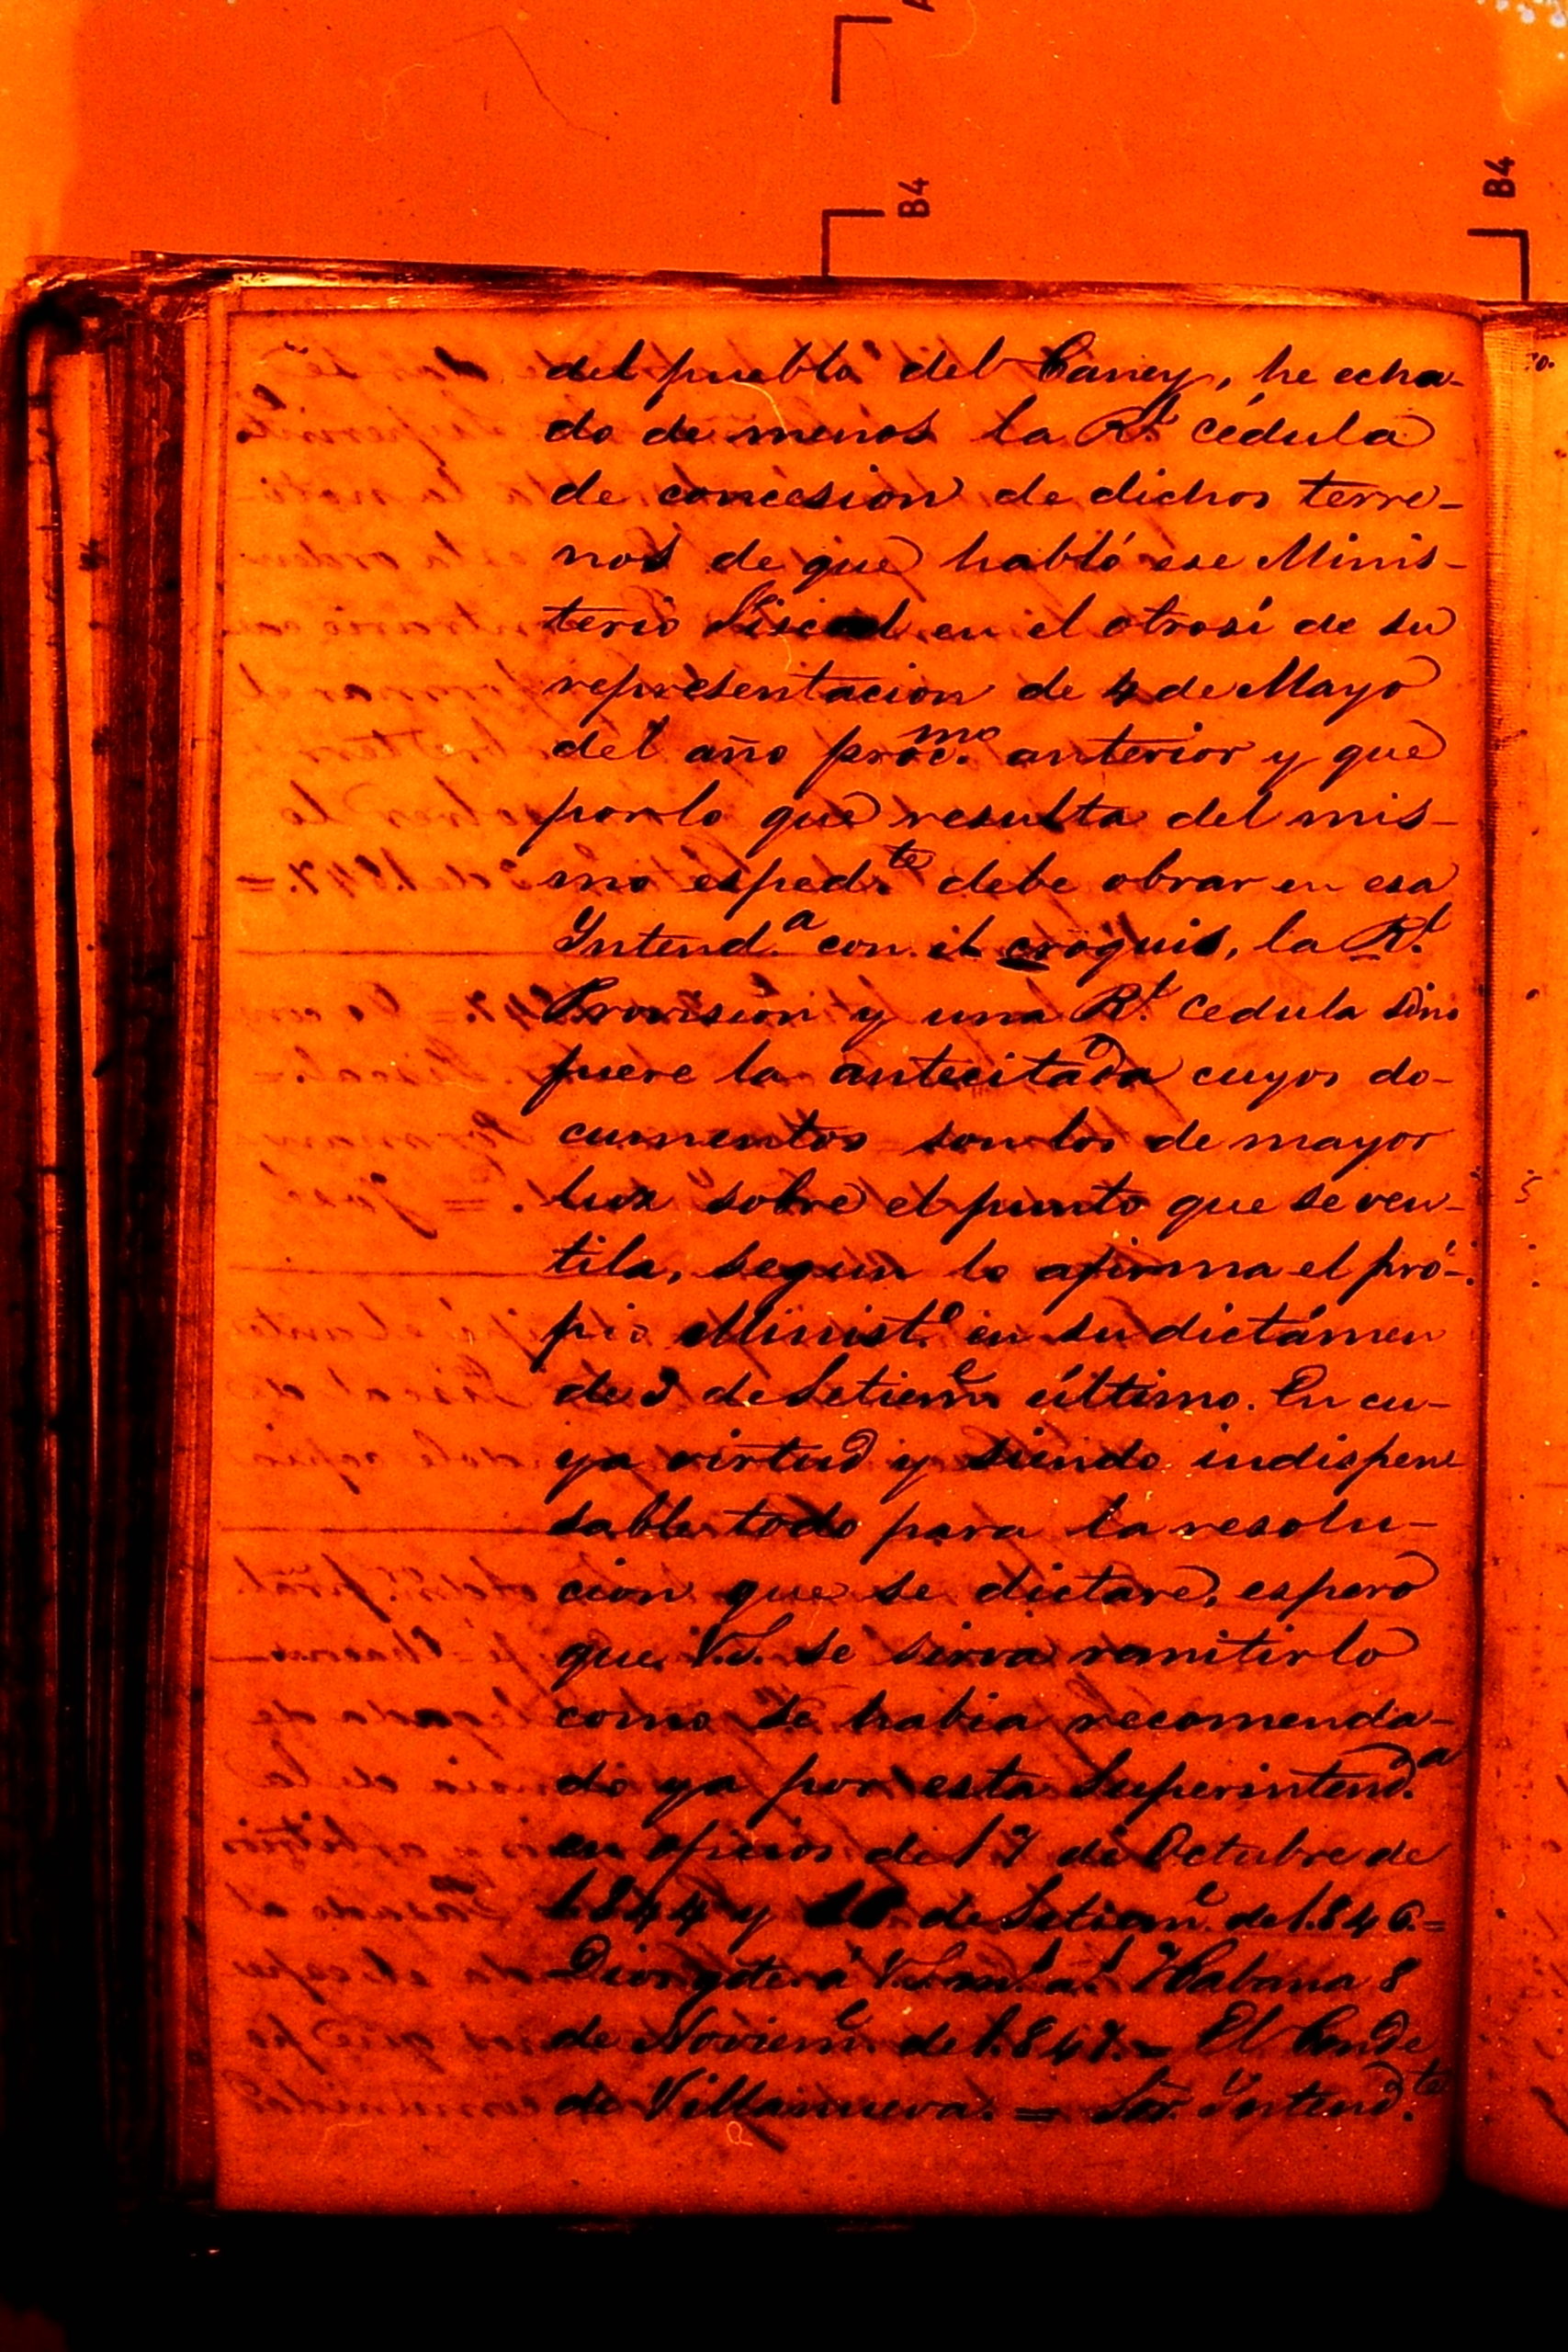 B4
B4
del pueblo del Caney, he echa-
do de menos la R.l cédula
de concesion de dichos terre-
nos de que habló ese Minis-
terio Fiscal en el otrosí de su
representacion de 4 de Mayo
del año proc.mo anterior y que
por lo que resulta del mis-
mo esped.te debe obrar en esa
Yntend.a con el croquis, la R.l
Provision y una R.l cedula sino
fuere la antecitada cuyos do-
cumentos son los de mayor
luz sobre el punto que se ven-
tila, segun lo afirma el pró-
pio Minist.o en su dictámen
de 3 de Setiem.e último. En cu-
ya virtud y siendo indispen
sable todo para la resolu-
cion que se dictare, espero
que V.S. se sirva remitirlo
como se habia recomenda-
do ya por esta Superintend.a
en oficios de 17 de Octubre de
1.844 y 10 de Setiem.e de 1.846.=
Dios gue. á V.S. m.s a.s Habana 8
de Noviem.e de 1.847.= El Conde
de Villanueva. = Sor. Yntend.te